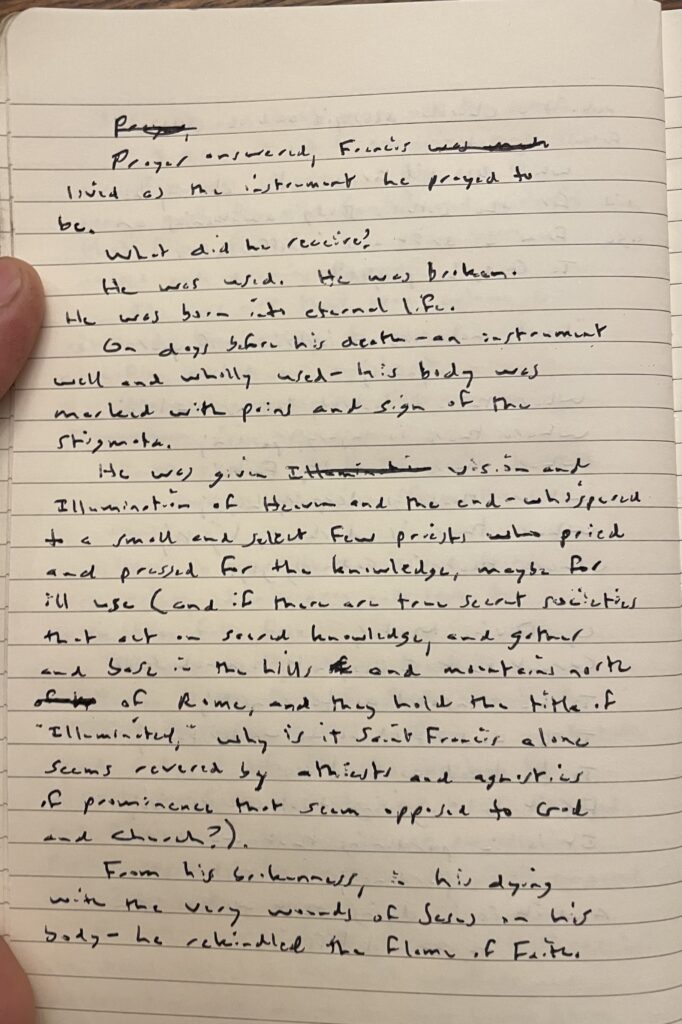 Prayer answered, Francis
lived as the instrument he prayed to
be.
What did he receive?
He was used. He was broken.
He was born into eternal life.
On days before his death—an instrument
well and wholly used—his body was
marked with pains and sign of the
stigmata.
He was given Illumination vision and
Illumination of Heaven and the end—whispered
to a small and select few priests who pried
and pressed for the knowledge, maybe for
ill use (and if there are true secret societies
that act on sacred knowledge, and gather
and base in the hills and mountains north
of Rome, and they hold the title of
"Illuminated," why is it Saint Francis alone
seems revered by athiests and agnostics
of prominence that seem opposed to God
and church?).
From his brokenness, in his dying
with the very wounds of Jesus on his
body—he rekindled the flame of Faith.